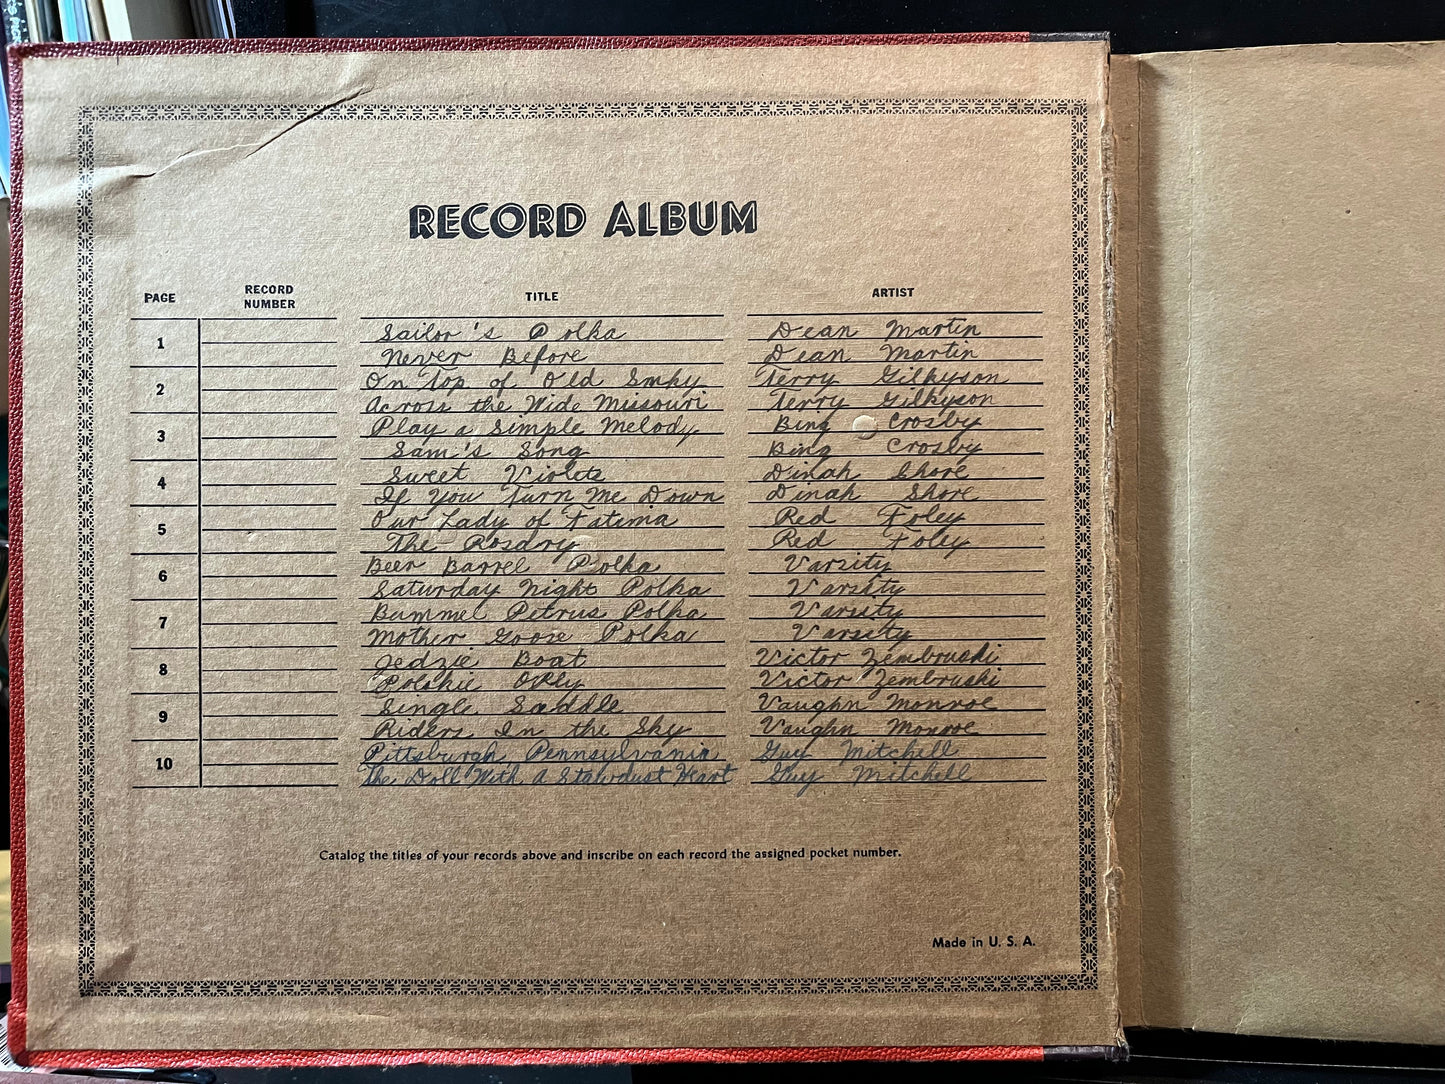 RECORD ALBUM
PAGE RECORD NUMBER TITLE ARTIST
1 Sailor's Polka Dean Martin
Never Before Dean Martin
2 On Top of Old Smky Terry Gilkyson
Across the Wide Missouri Terry Gilkyson
3 Play a Simple Melody Bing Crosby
Sam's Song Bing Crosby
4 Sweet Violets Dinah Shore
If You Turn Me Down Dinah Shore
5 Our Lady of Fatima Red Foley
The Rosary Red Foley
6 Beer Barrel Polka Varsity
Saturday Night Polka Varsity
7 Bummel Petrus Polka Varsity
Mother Goose Polka Varsity
8 Jedzie Boat Victor Zembruski
Polskie Victor Zembruski
9 Single Saddle Vaughn Monroe
Riders In the Sky Vaughn Monroe
10 Pittsburgh Pennsylvania Guy Mitchell
The Doll With A Stawdust Heart Guy Mitchell
Catalog the titles of your records above and inscribe on each record the assigned pocket number.
Made in U. S. A.